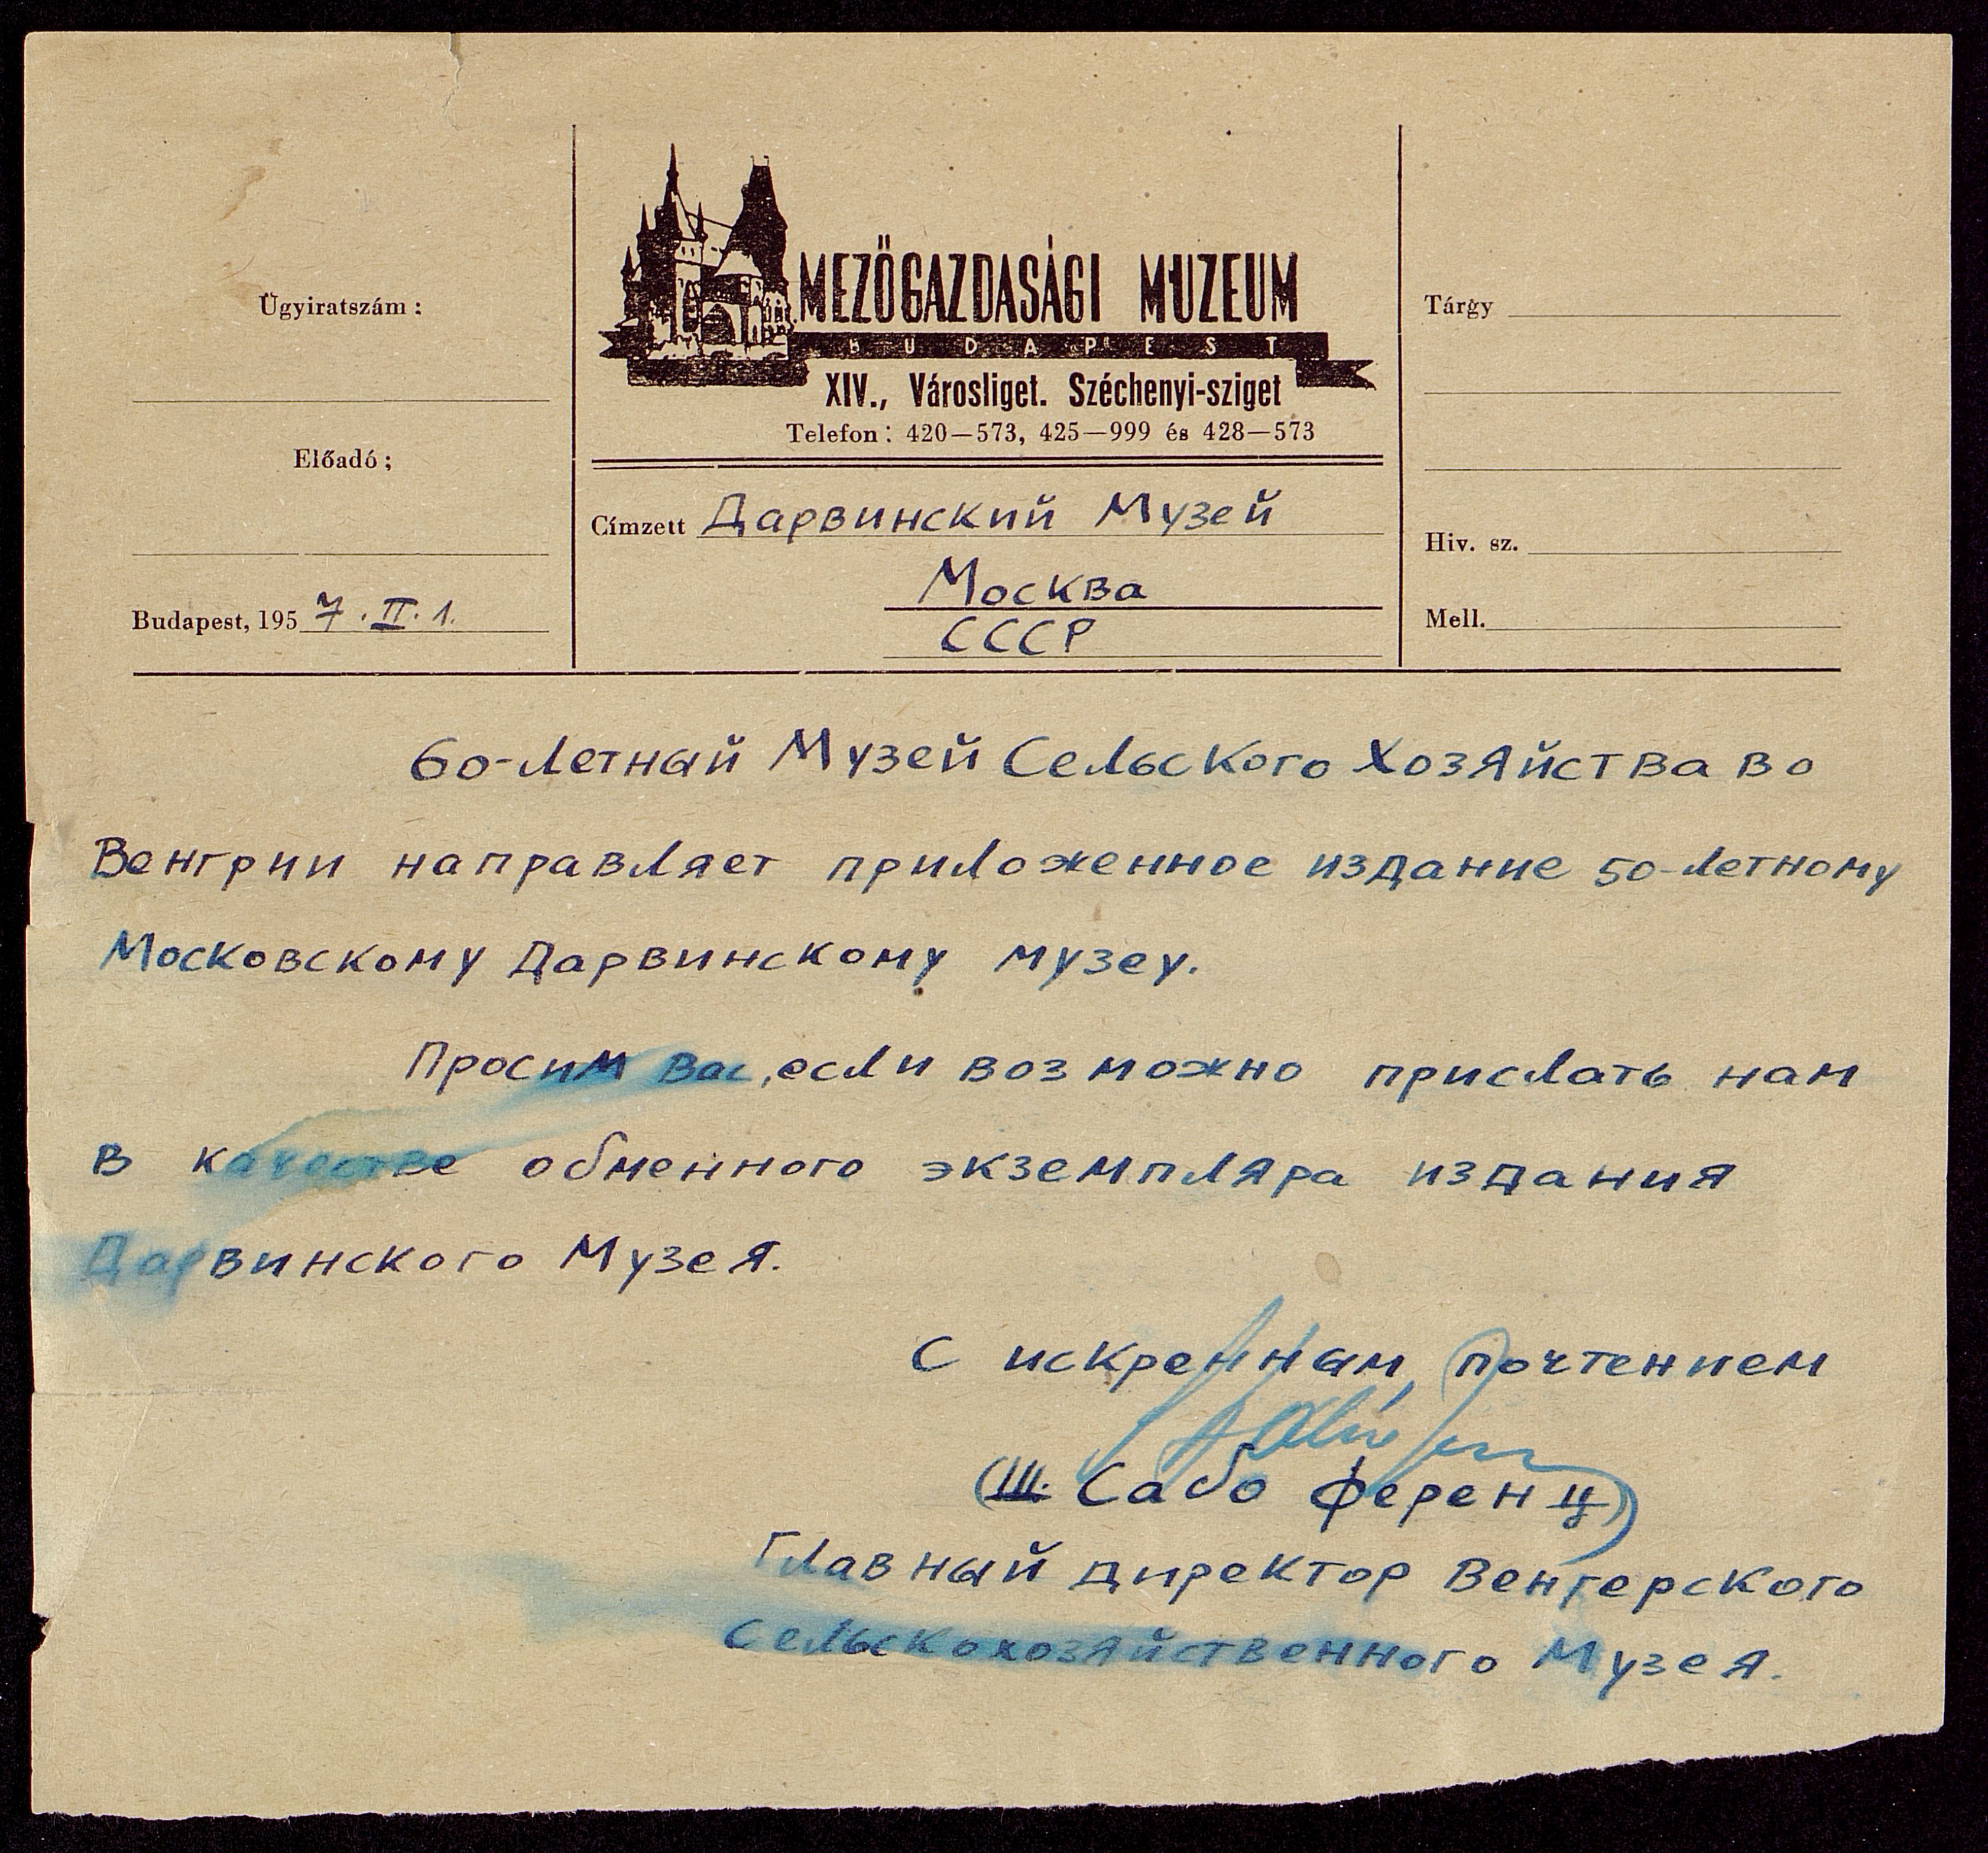 Ügyiratszám :
Előadó ;
Budapest, 195 7. II. 1.
MEZŐGAZDASÁGI MUZEUM
BUDAPEST
XIV., Városliget. Széchenyi-sziget
Telefon : 420—573, 425—999 és 428—573
Címzett Дарвинский Музей
Москва
СССР
Tárgy
Hiv. sz.
Mell.
60-летный Музей Сельского Хозяйства во
Венгрии направляет приложенное издание 50-летному
Московскому Дарвинскому музеу.
Просим Вас, если возможно прислать нам
в качестве обменного экземпляра издания
Дарвинского Музея.
С искренным почтением
(Ш. Сабо Ференц)
Главный директор Венгерского
Сельскохозяйственного Музея.